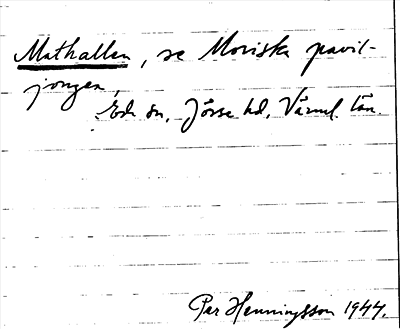 Mathallen, se Moriska pavil-
jongen,
Eds sn, Jösse hd, Värml. län.
Per Henningsson 1944.